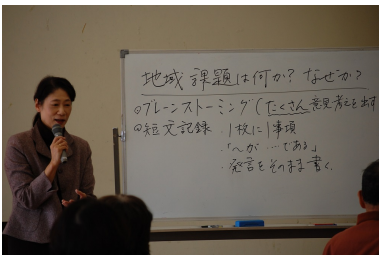 地域課題は何か？なぜか？
◎ブレーンストーミング（たくさん意見考えを出す
◎短文記録・1枚に1事項
・「〜が…である」
・発言をそのまま書く。